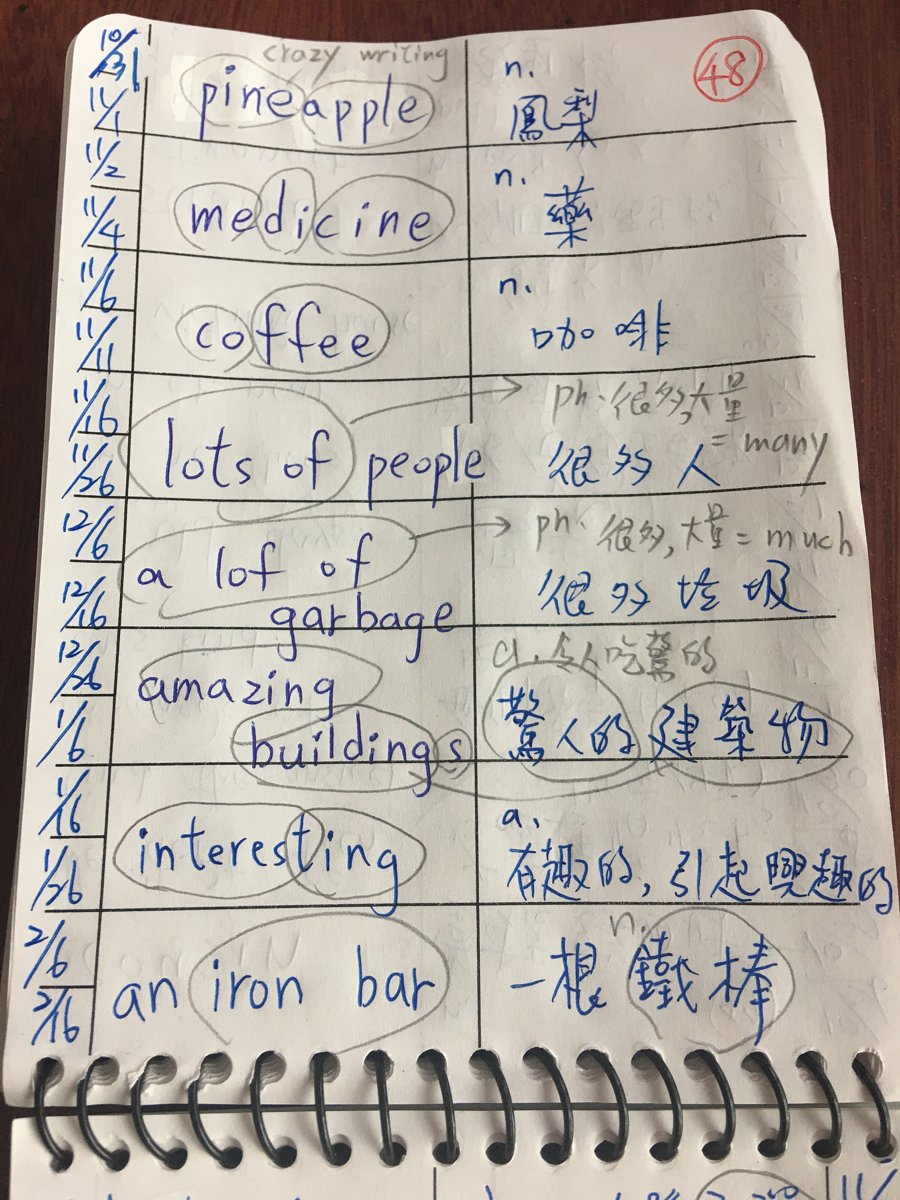 10/31 crazy writing n. 48
11/1 pineapple 鳳梨
11/2 n.
11/4 medicine 藥
11/6 n.
11/11 coffee 咖啡
11/16 ph. 很多,大量
= many
11/26 lots of people 很多人
12/6 ph. 很多,大量 = much
a lof of
12/16 garbage 很多垃圾
12/26 amazing a. 令人吃驚的
1/6 buildings 驚人的建築物
1/16 a.
1/26 interesting 有趣的, 引起興趣的
2/6 n.
2/16 an iron bar 一根鐵棒